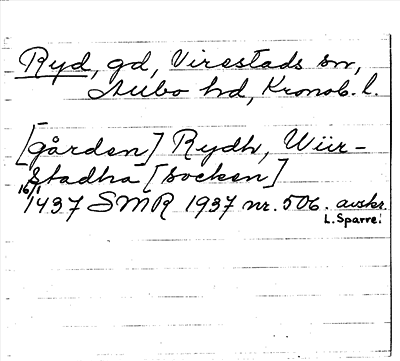 Ryd, gd, Virestads sn,
Allbo hd, Kronob. l.
[gården] Rydh, Wiir-
stadha [socken]
16/1 1437 SMR 1937 nr. 506. avskr.
L. Sparre.